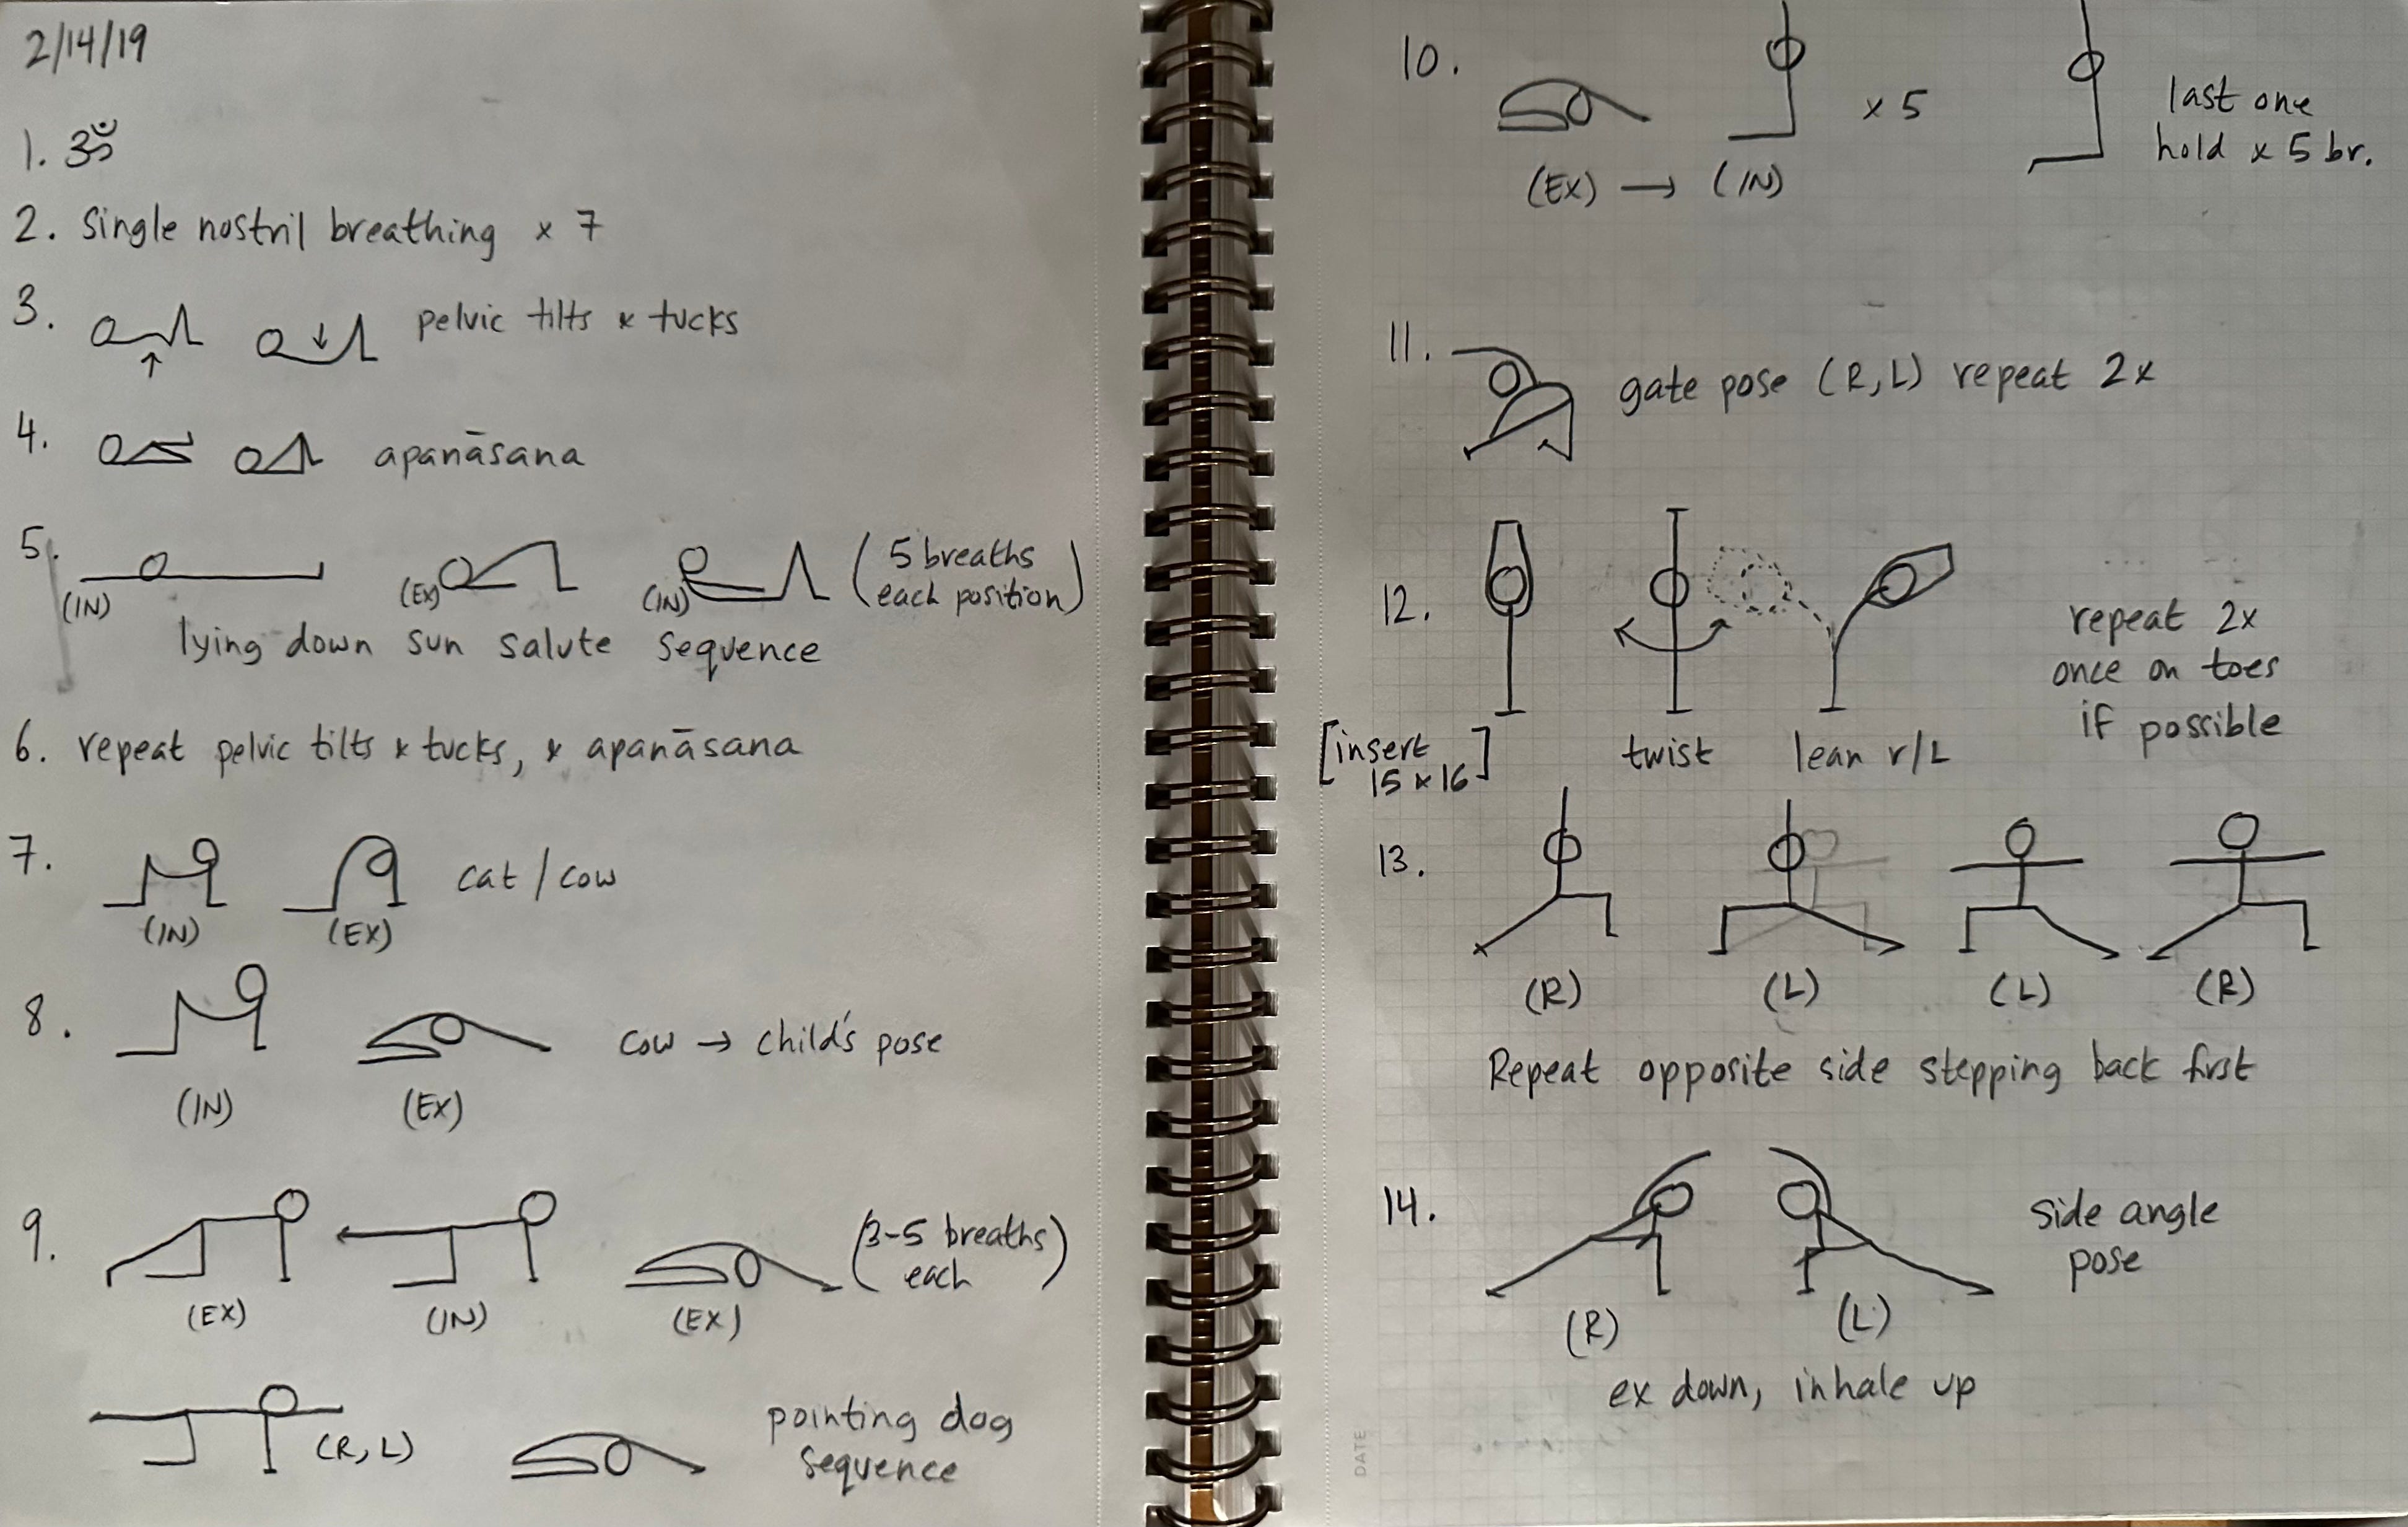 2/14/19
1. ॐ
2. single nostril breathing x 7
3. pelvic tilts & tucks
4. apanāsana
5. (IN) (EX) (IN) (5 breaths
each position)
lying down sun salute sequence
6. repeat pelvic tilts & tucks, & apanāsana
7. cat / cow
(IN) (EX)
8. cow → child's pose
(IN) (EX)
9. (3-5 breaths)
each
(EX) (IN) (EX)
(R, L) pointing dog
sequence
10. x 5 last one
hold x 5 br.
(EX) → (IN)
11. gate pose (R, L) repeat 2x
12. repeat 2x
once on toes
if possible
[insert
15 & 16] twist lean r/L
13.
(R) (L) (L) (R)
Repeat opposite side stepping back first
14. side angle
pose
(R) (L)
ex down, inhale up
DATE